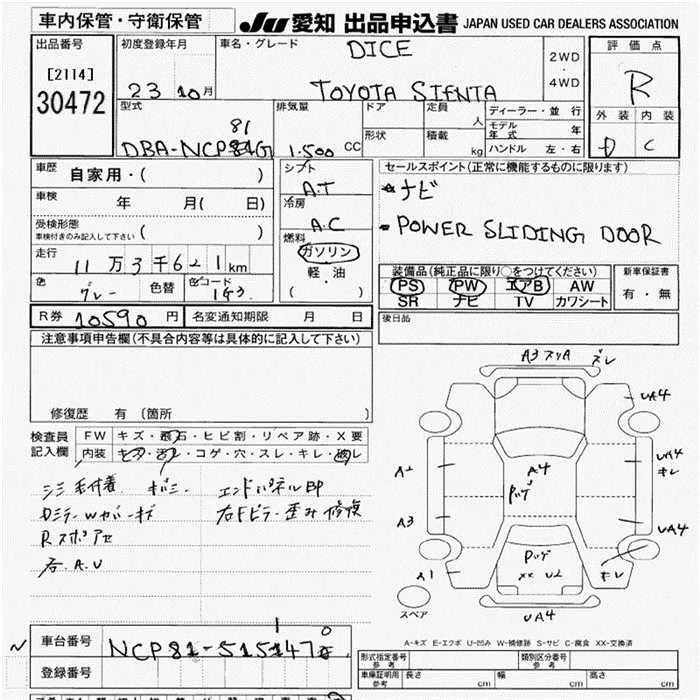 車内保管・守衛保管
JU 愛知 出品申込書 JAPAN USED CAR DEALERS ASSOCIATION
出品番号 [2114] 30472
初度登録年月 23 10月
車名・グレード DICE
TOYOTA SIENTA
2WD・4WD
評価点 R
外装 内装
D C
型式 81
DBA-NCP81G
排気量 1.500 CC
ドア 定員 人
形状 積載 kg
ディーラー・並行
モデル年式 年
ハンドル 左・右
車歴 自家用・( )
車検 年 月( 日)
受検形態
車検付きのみ記入して下さい ( )
走行 11万3千621km
色 グレー 色替 色コード 1G3
シフト A.T
冷房 A.C
燃料 ガソリン
軽・油
( )
セールスポイント(正常に機能するものに限ります)
ナビ
POWER SLIDING DOOR
装備品(純正品に限り○をつけてください)
PS PW エアB AW
SR ナビ TV カワシート
新車保証書
有・無
R券 10590円 名変通知期限 月 日
後日品
注意事項申告欄(不具合内容等は具体的に記入して下さい)
修復歴 有(箇所 )
検査員記入欄 FW キズ・飛石・ヒビ割・リペア跡・X要
内装 キズ・汚レ・コゲ・穴・スレ・キレ・破レ
エンドパネル凹
右Fピラー歪み修復
Rスポアセ
A3 スリA ズレ
UA4
A2
A4
UA4
キレ
A3
UA4
A1
XX U2
キレ
UA4
スペア
A-キズ E-エクボ U-凹み W-補修跡 S-サビ C-腐食 XX-交換済
車台番号 NCP81-5151470
登録番号
型式指定番号 参考 類別区分番号 参考
車庫証明用 参考 長さ cm 幅 cm 高さ cm